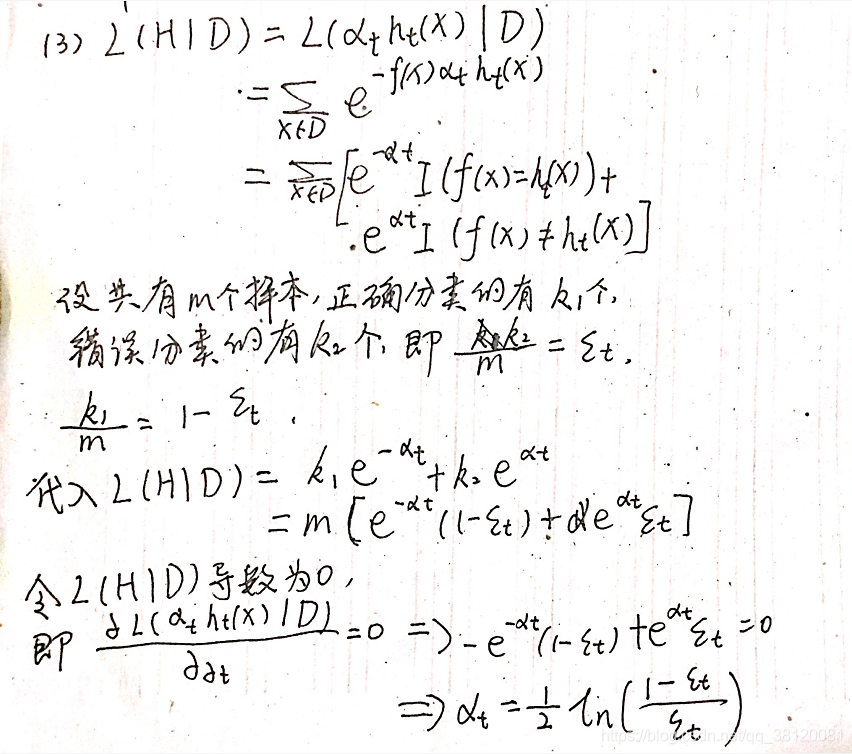 (3) L(H|D) = L(αₜhₜ(x)|D)
= ∑_{x∈D} e^{-f(x)αₜhₜ(x)}
= ∑_{x∈D} [e^{-αₜ} I(f(x)=hₜ(x)) +
e^{αₜ} I(f(x)≠hₜ(x)]
设共有m个样本,正确分类的有k₁个,
错误分类的有k₂个,即 k₂/m = εₜ,
k₁/m = 1-εₜ.
代入L(H|D) = k₁e^{-αₜ}+k₂e^{αₜ}
= m[e^{-αₜ}(1-εₜ)+e^{αₜ}εₜ]
令L(H|D)导数为0,
即 ∂L(αₜhₜ(x)|D)/∂αₜ = 0 => -e^{-αₜ}(1-εₜ)+e^{αₜ}εₜ=0
=> αₜ = 1/2 ln((1-εₜ)/εₜ)
https://blog.csdn.net/qq_38120081